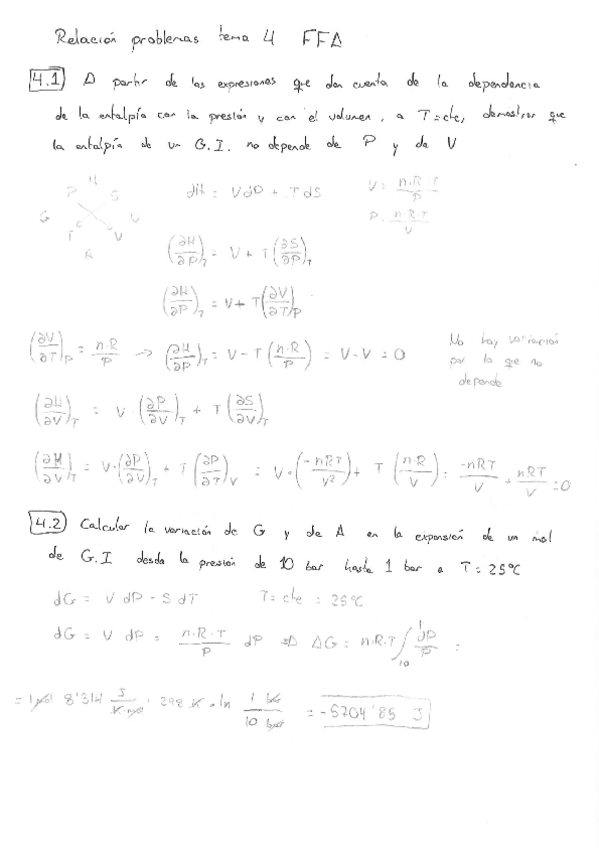 Relación problemas tema 4 FFA
4.1) A partir de las expresiones que dan cuenta de la dependencia
de la entalpía con la presión y con el volumen, a T=cte, demostrar que
la entalpía de un G.I. no depende de P y de V
H
P S
G U
T V
A
dH = VdP + TdS
V = n·R·T/P
P = n·R·T/V
(∂H/∂P)_T = V + T(∂S/∂P)_T
(∂H/∂P)_T = V + T(∂V/∂T)_P
(∂V/∂T)_P = n·R/P → (∂H/∂P)_T = V - T(n·R/P) = V - V = 0
No hay variación
por lo que no
depende
(∂H/∂V)_T = V·(∂P/∂V)_T + T(∂S/∂V)_T
(∂H/∂V)_T = V·(∂P/∂V)_T + T(∂P/∂T)_V = V·(-nRT/V²) + T(n·R/V) = -nRT/V + nRT/V = 0
4.2) Calcular la variación de G y de A en la expansión de un mol
de G.I desde la presión de 10 bar hasta 1 bar a T=25ºC
dG = V dP - S dT T = cte = 25ºC
dG = V dP = n·R·T/P dP ⇒ ΔG = n·R·T ∫₁₀¹ dP/P =
= 1 mol 8'314 J/K·mol · 298 K · ln 1 bar/10 bar = -5704'85 J